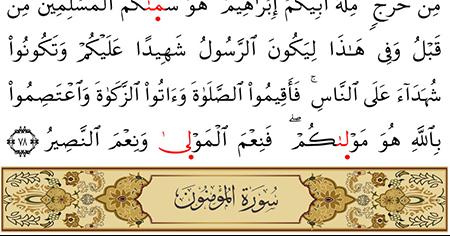 مِنْ حَرَجٍ مِلَّةَ أَبِيكُمْ إِبْرَاهِيمَ هُوَ سَمَّىٰكُمُ الْمُسْلِمِينَ مِن
قَبْلُ وَفِي هَـٰذَا لِيَكُونَ الرَّسُولُ شَهِيدًا عَلَيْكُمْ وَتَكُونُوا۟
شُهَدَآءَ عَلَى النَّاسِ ۚ فَأَقِيمُوا۟ الصَّلَوٰةَ وَءَاتُوا۟ الزَّكَوٰةَ وَاعْتَصِمُوا۟
بِاللَّهِ هُوَ مَوْلَىٰكُمْ ۖ فَنِعْمَ الْمَوْلَىٰ وَنِعْمَ النَّصِيرُ ﴿٧٨﴾
سُورَةُ الْمُؤْمِنُونَ